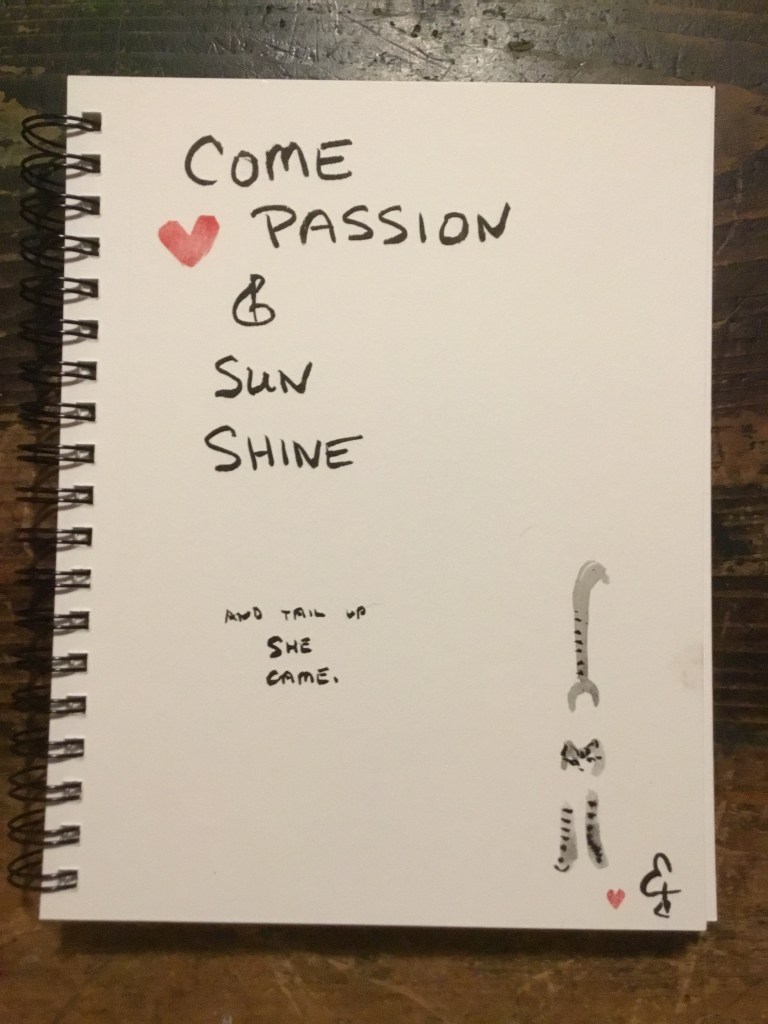 COME
PASSION
&
SUN
SHINE
AND TAIL UP
SHE
CAME.